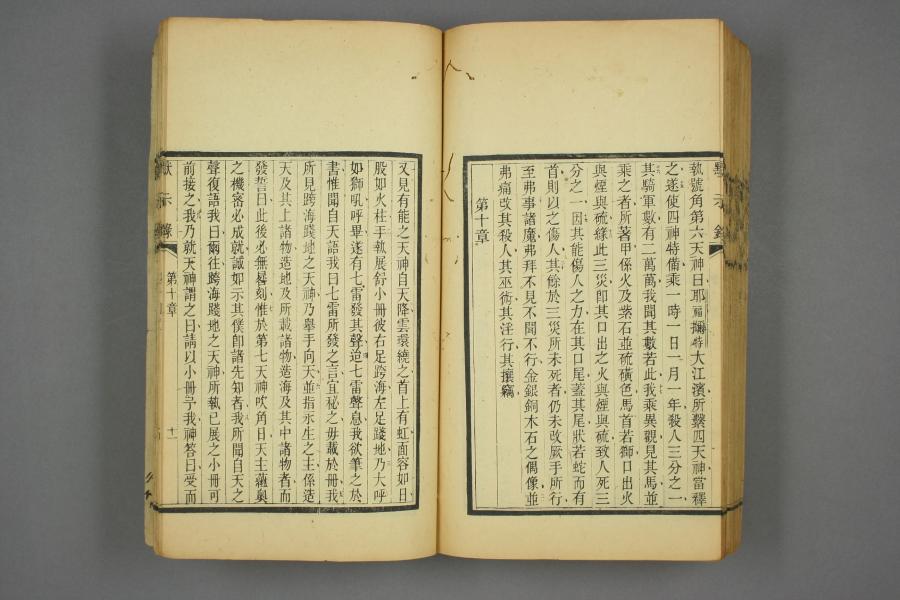 執號角第六天神曰耶福辣特大江濱所繫四天神當釋
之遂使四神特備乘一時一日一月一年殺人三分之一
其騎軍數有二萬萬我聞其數若此我乘異觀見其馬並
乘之者所著甲係火及紫石並硫磺色馬首若獅口出火
與煙與硫緣此三災卽其口出之火與煙與硫致人死三
分之一因其能傷人之力在其口尾蓋其尾狀若蛇而有
首則以之傷人其餘於三災所未死者仍未改厥手所行
至弗事諸魔弗拜不見不聞不行金銀銅木石之偶像並
弗痛改其殺人其巫術其淫行其攘竊
第十章
又見有能之天神自天降雲環繞之首上有虹面容如日
股如火柱于執展舒小冊彼右足跨海左足踐地乃大呼
如獅吼呼畢遂有七雷發其聲迨七雷聲息我欲筆之於
書惟聞自天語我曰七雷所發之言宜秘之毋載於冊我
所見跨海踐地之天神乃舉手向天並指永生之主係造
天及其上諸物造地及所載諸物造海及其中諸物者而
發誓曰此後必無晷刻惟於第七天神吹角日天主蘊奧
之機密必成就誠如示其僕卽諸先知者我所聞自天之
聲復語我曰爾往跨海踐地之天神所執已展之小冊可
前接之我乃就天神謂之曰請以小冊予我神答曰受而
示錄
第十章
十一